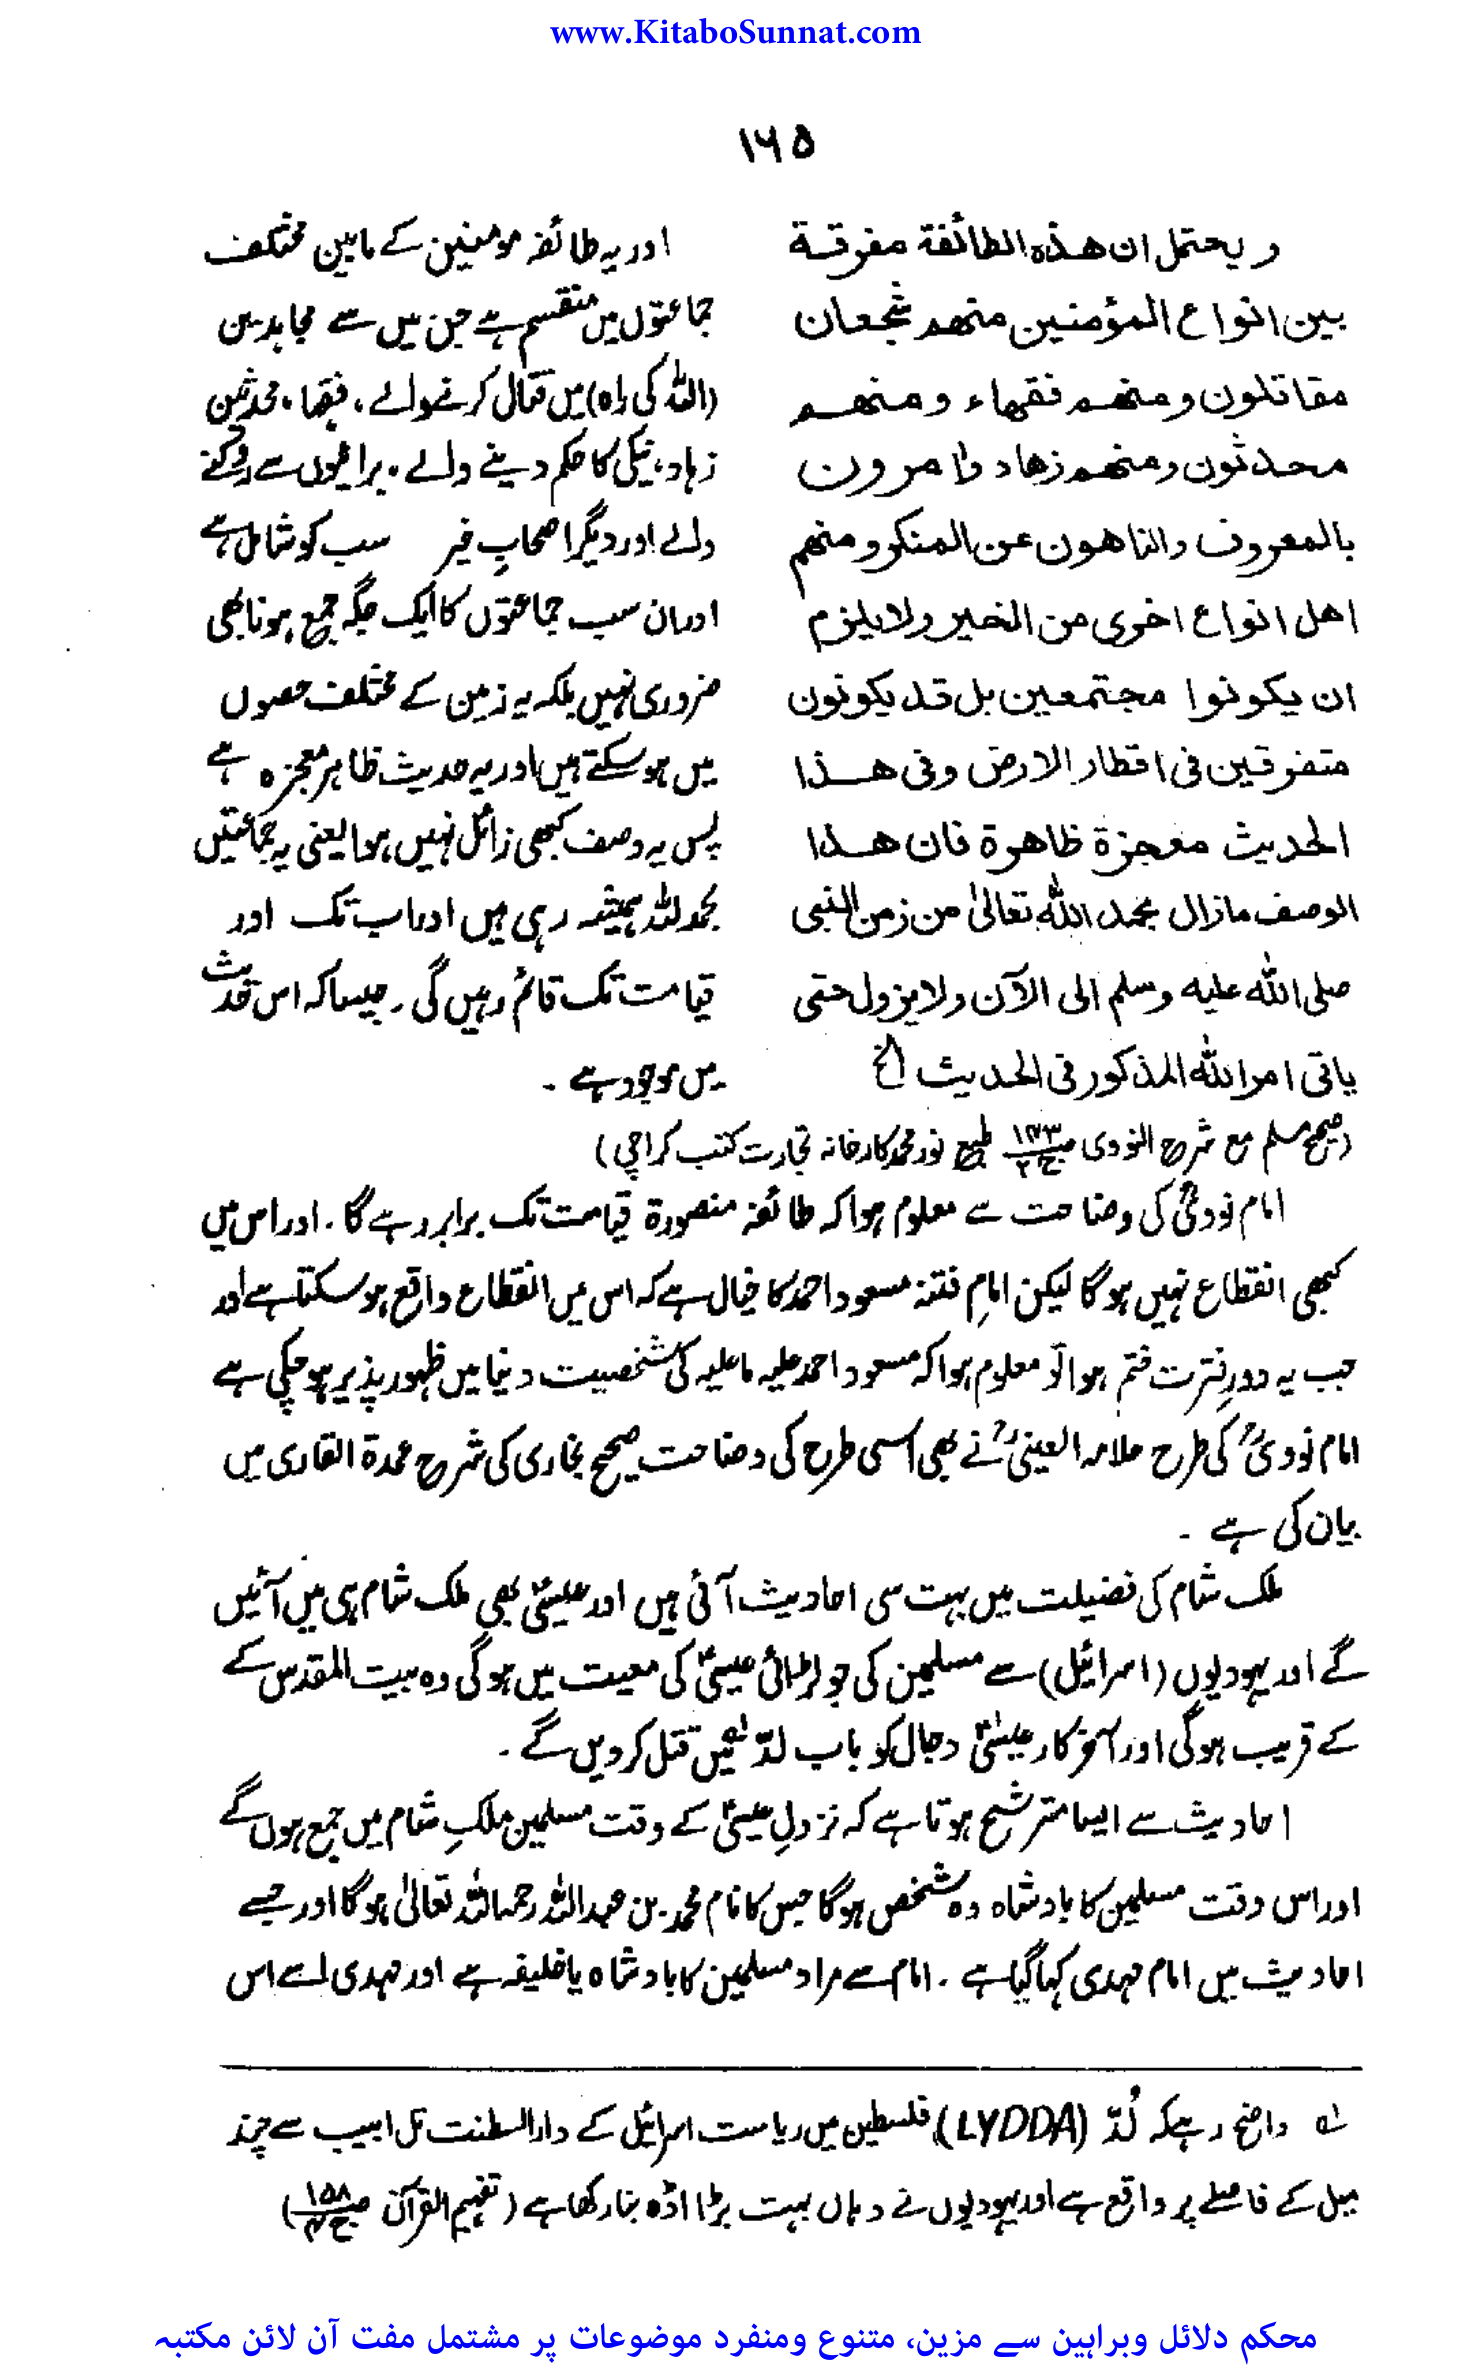 www.KitaboSunnat.com
۱۶۵
ویحتمل ان ھذہ الطائفة مفرقة
بین انواع المؤمنین منھم شجعان
مقاتلون ومنھم فقھاء ومنھم
محدثون ومنھم زھاد وامرون
بالمعروف والناھون عن المنکر ومنھم
اھل انواع اخری من الخیر ولا یلزم
ان یکونوا مجتمعین بل قد یکونون
متفرقین فی اقطار الارض وفی ھذا
الحدیث معجزة ظاھرة فان ھذا
الوصف مازال بحمد اللہ تعالیٰ من زمن النبی
صلی اللہ علیہ وسلم الی الآن ولا یزول حتی
یاتی امر اللہ المذکور فی الحدیث الخ
اور یہ طائفہ مومنین کے مابین مختلف
جماعتوں میں منقسم ہے جن میں سے مجاہدین
(اللہ کی راہ) میں قتال کرنے والے، فقہا، محدثین
زہاد، نیکی کا حکم دینے والے، برائیوں سے روکنے
والے اور دیگر اصحابِ خیر سب کو شامل ہے
اور ان سب جماعتوں کا ایک جگہ جمع ہونا بھی
ضروری نہیں بلکہ یہ زمین کے مختلف حصوں
میں ہو سکتے ہیں اور یہ حدیث ظاہر معجزہ ہے
پس یہ وصف کبھی زائل نہیں ہوا یعنی یہ جماعتیں
بحمد للہ ہمیشہ رہی ہیں اور اب تک اور
قیامت تک قائم رہیں گی۔ جیسا کہ اس حدیث
میں موجود ہے ۔
(صحیح مسلم مع شرح النووی ص۱۴۳ ج۲ طبع نور محمد کارخانہ تجارت کتب کراچی)
امام نوویؒ کی وضاحت سے معلوم ہوا کہ طائفہ منصورۃ قیامت تک برابر رہے گا۔ اور اس میں
کبھی انقطاع نہیں ہوگا لیکن امامِ فتنہ مسعود احمد کا خیال ہے کہ اس میں انقطاع واقع ہو سکتا ہے اور
جب یہ دورِ فترت ختم ہوا تو معلوم ہوا کہ مسعود احمد علیہ ماعلیہ کی شخصیت دنیا میں ظہور پذیر ہو چکی ہے
امام نوویؒ کی طرح علامہ العینیؒ نے بھی اسی طرح کی وضاحت صحیح بخاری کی شرح عمدۃ القاری میں
بیان کی ہے ۔
ملک شام کی فضیلت میں بہت سی احادیث آئی ہیں اور عیسیٰؑ بھی ملک شام ہی میں آئیں
گے اور یہودیوں (اسرائیل) سے مسلمین کی جو لڑائی عیسیٰؑ کی معیت میں ہوگی وہ بیت المقدس کے
کے قریب ہوگی اور آخر کار عیسیٰؑ دجال کو باب لدّ لہ میں قتل کر دیں گے ۔
احادیث سے ایسا مترشح ہوتا ہے کہ نزولِ عیسیٰؑ کے وقت مسلمین ملکِ شام میں جمع ہوں گے
اور اس وقت مسلمین کا بادشاہ وہ شخص ہوگا جس کا نام محمد بن عبداللہ رحمہ اللہ تعالیٰ ہوگا اور جسے
احادیث میں امام مہدی کہا گیا ہے ۔ امام سے مراد مسلمین کا بادشاہ یا خلیفہ ہے اور مہدی اسے اس
لہ واضح رہے کہ لُدّ (LYDDA) فلسطین میں ریاست اسرائیل کے دارالسلطنت تل ابیب سے چند
میل کے فاصلے پر واقع ہے اور یہودیوں نے وہاں بہت بڑا اڈہ بنا رکھا ہے (تفہیم القرآن ص۱۵۸ ج۴)
محکم دلائل وبراہین سے مزین، متنوع ومنفرد موضوعات پر مشتمل مفت آن لائن مکتبہ